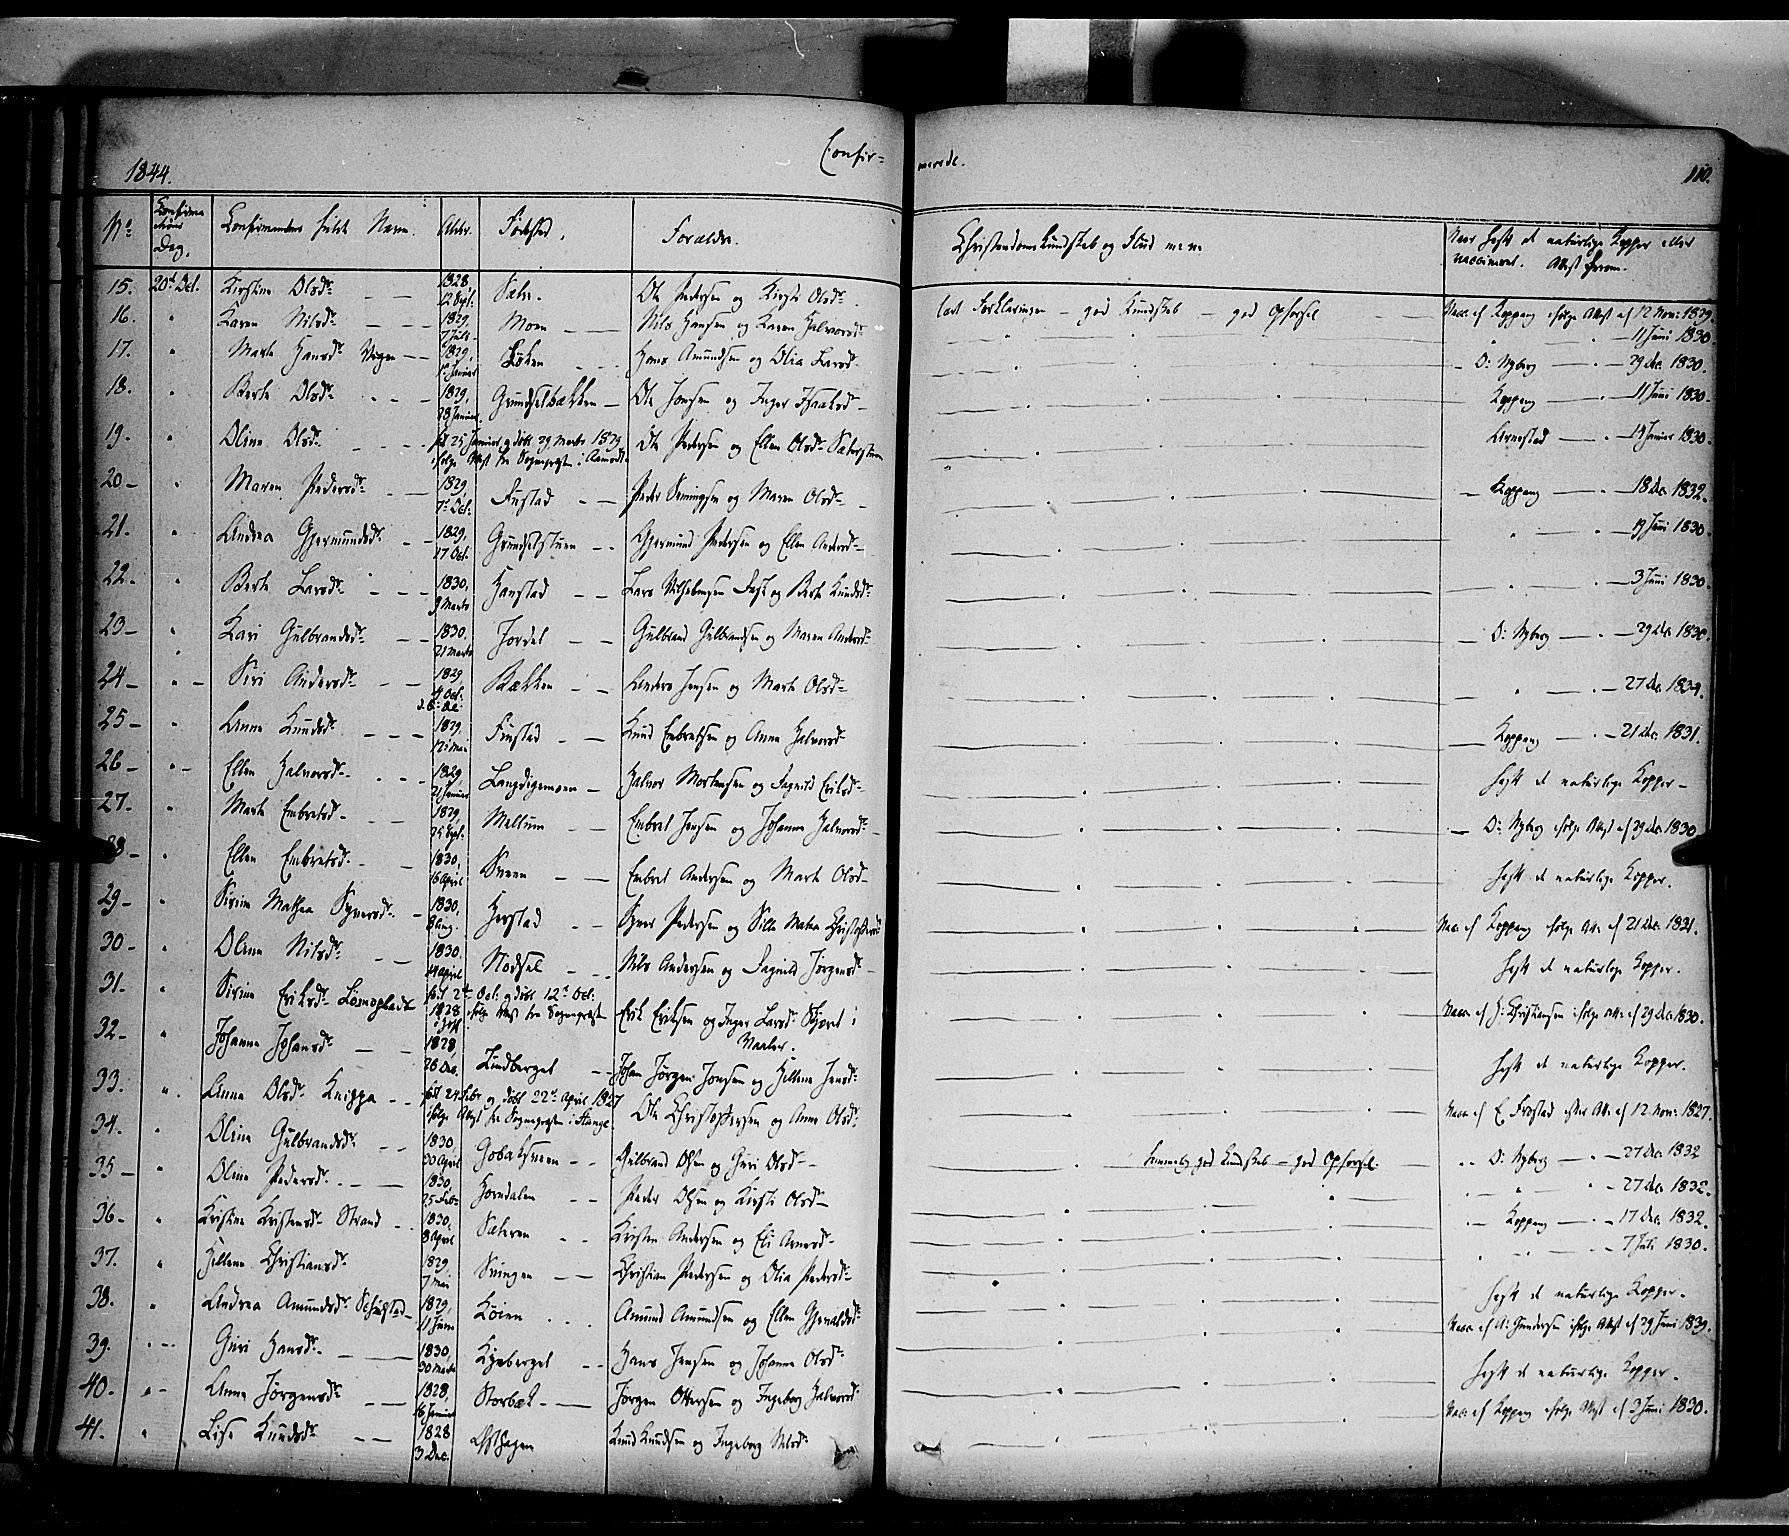 1844.
Confir=
merede.
110.
No
Confirma
tions
Dag.
Confirmandens fulde Navn
Alder.
Fødested.
Forældre.
Christendoms Kundskab og
Naar havt de naturlige Kopper eller
vaccineret. Attest herom.
15. 20de Oct. Kirstine Olsdr 1828 12 Sept: Sætre. Ole Pedersen og Kirsti Olsdr
læst Forklaringen – god Kundskab – god Opførsel Vacc. af Koppang ifølge Attest af 12 Nov: 1829.
16. Karen Nilsdr 1829, 7 Juli Moen Nils Hansen og Karen Halvorsdr 11 Juni 1830.
17. Marte Hansdr 1829, Løken Hans Amundsen og Olia Larsdr D: Nyberg 29 Dec 1830.
18. Berte Olsdr 1829, 28 Januar Grundsetbækken Ole Jonsen og Inger Isaksdr Koppang 11 Juni 1830.
19. Oline Olsdr født 25 Januar og døbt 29 Marts 1829 Ole Pedersen og Ellen Olsdr Sæterstuen 1830.
ifølge Attest fra Sognepræsten i Aamodt.
20. Maren Pedersdr 1829, 7de Oct. Fustad Peder og Maren Olsdr Koppang 18 Dec 1832.
21. Andrea Gjermundsdr 1829, 17 Oct. Grundsetstuen Gjermund Pedersen og Ellen Andersdr 19 Juni 1830.
22. Berte Larsdr 1830. 9 Marts Hanstad Lars Vilhelmsen og Berte Knudsdr 3 Juni 1830.
23. Kari Gulbrandsdr 1830. 21 Marts Jordet Gulbrand Gulbrandsen og Maren Andersdr D: Nyberg 29 Dec 1830.
24 Siri Andersdr 1829, Oct. Bækken Anders Jensen og Marte Olsdr 27 Dec 1834.
25 Anne Knudsdr 1829, 12 Mai Fustad Knud Embretsen og Anne Halvorsdr Koppang 21 Dec 1831.
26 Ellen Halvorsdr 1829, 21 Januar Langdigemoen Halvor Mortensen og Dagnild Eriksdr Havt de naturlige Kopper
27. Marte Embretsdr 1829, 25 Sept. Mellum Embret Jensen og Johanne Halvorsdr D: Nyberg ifølge Attest af 29 Dec 1830
28 Ellen Embretsdr 1830, 16 April Sveen Embret Andersen og Marte Olsdr Havt de naturlige Kopper.
29 Sirine Mathea Syversdr 1830. Herstad Syver Pedersen og Silla Matea Christophersdr Vacc. af Koppang ifølge Att. af 21 Dec 1831.
30 Oline Nilsdr 1830. April Nodset Nils Andersen og Dagnild Jørgensdr Havt de naturlige Kopper.
31. Sirine Eriksdr født 2de Oct: og døbt 12te Oct: Erik Eriksen og Inger Larsdr i
1828 ifølge Attest fra Sognepræst Vaaler. Vacc. af H: Christiansen ifølge Att. af 29 Dec 1830.
32 Johanne Johansdr 1828, 26 Dec. Lindberget Johan Jørgen Jonsen og Hellene Jensdr Havt de naturlige Kopper.
33. Anne Olsdr Knippa født 24 Febr og døbt 22de April 1827 Ole Christophersen og Anne Olsdr Vacc. af E. Frostad efter Att. af 12 Nov: 1827.
ifølge Attest fra Sognepræsten i Stange
34. Oline Gulbrandsdr 1830 30 April Gobaksveen Gulbrand Olsen og Guri Olsdr
temmelig god Kundskab – god Opførsel. D: Nyberg 27 Dec 1832
35 Oline Pedersdr 1830. 25 Febr Horndalen Peder Olsen og Kirsti Olsdr 27 Dec 1832.
36 Kristine Kristensdr Strand 1830. 8 April Sæteren Kristen Andersen og Eli Arnesdr Koppang 17 Dec 1832.
37. Hellene Christiansdr 1829, 7 Mai Svingen Christian Pedersen og Olia Pedersdr 7 Juli 1830.
38. Andrea Amundsdr 1829, 11 Juni Løien Amund Amundsen og Ellen Gjeraldsdr Havt de naturlige Kopper.
39. Guri Hansdr 1830, 30 Marts Kyeberget Hans Jensen og Johanne Olsdr Vacc. af A: Gundersen ifølge Attest af 29 Juni 1839.
40. Anne Jørgensdr 1828, 16 Januar Storbæk Jørgen Ottersen og Ingeborg Halvorsdr Havt de naturlige Kopper.
41. Lise Knudsdr 1828 3 Dec. Knud Knudsen og Ingeborg Nilsdr Vacc. af Koppang ifølge Attest af 3 Juni 1830.